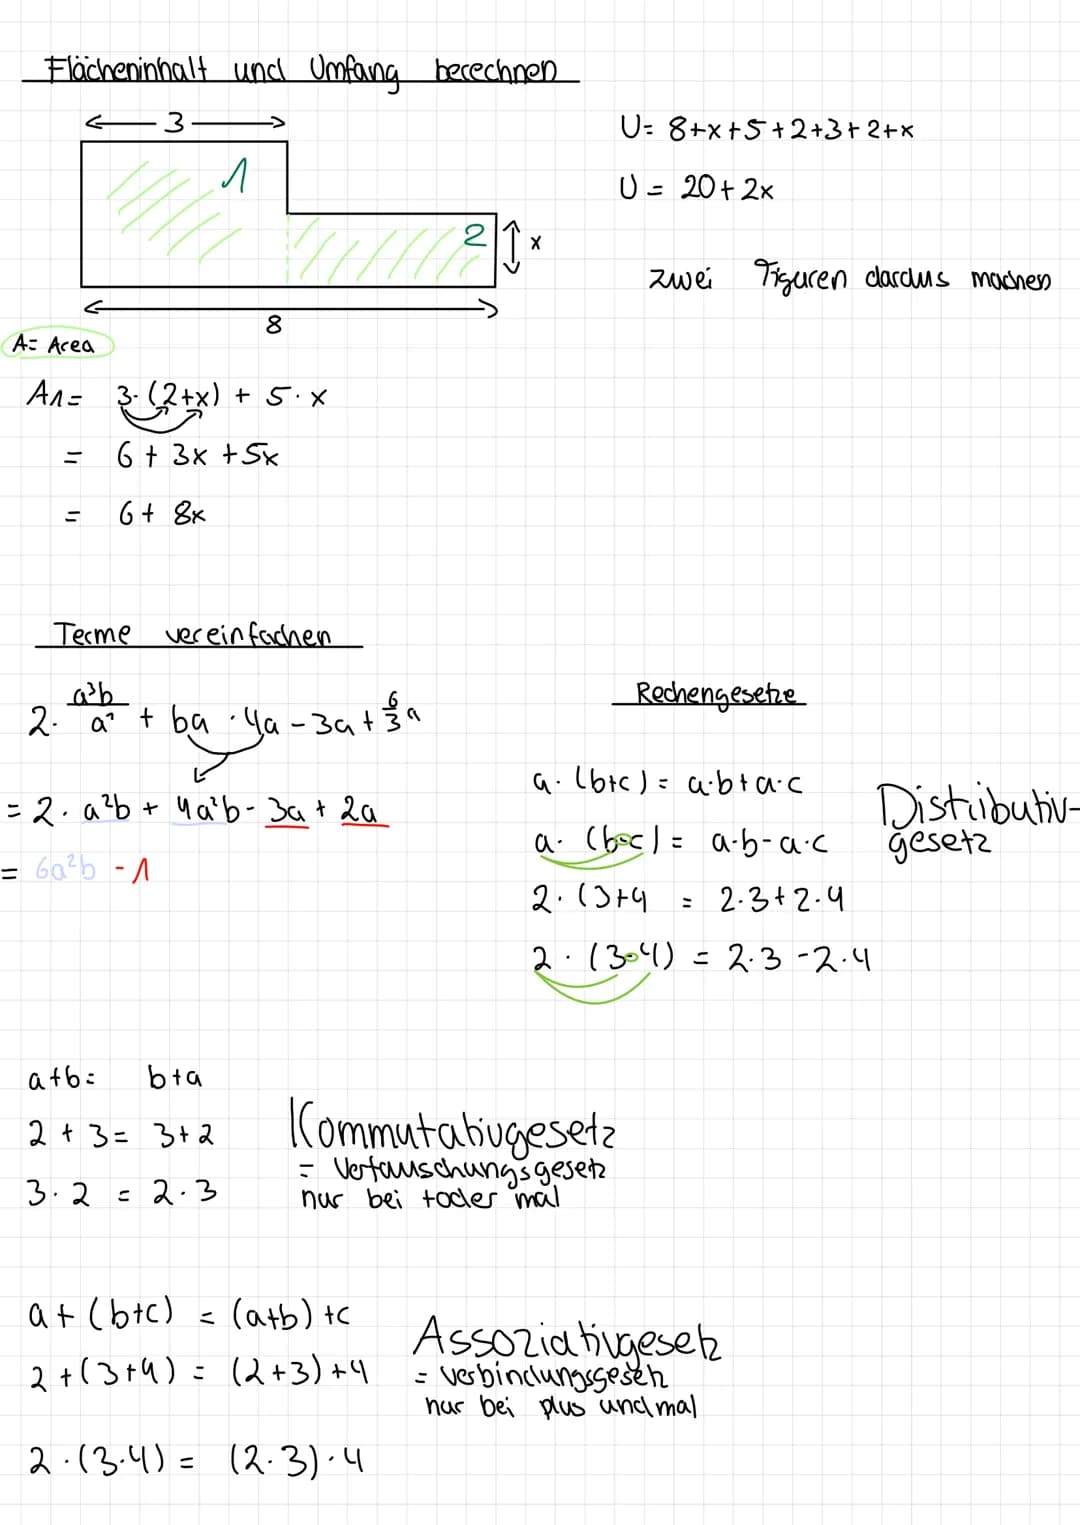 Flächeninhalt und Umfang berechnen
3
1
2
x
8
U= 8+x+5+2+3+2+x
U = 20+2x
zwei Figuren daraus machen
A= Area
A1= 3·(2+x) + 5·x
= 6+ 3x +5x
= 6+ 8x
Terme vereinfachen
2· a³b/a² + ba ·4a - 3a + 6/3 a
= 2· a²b + 4a²b - 3a + 2a
= 6a²b -1
Rechengesetze
a· (b+c) = a·b+a·c
a· (b-c) = a·b-a·c
2· (3+4 = 2·3+2·4
2 · (3-4) = 2·3 -2·4
Distributiv-
gesetz
a+b= b+a
2 + 3= 3+2
3·2 = 2·3
Kommutativgesetz
= Vertauschungsgesetz
nur bei +oder mal
a+ (b+c) = (a+b) +c
2+(3+4) = (2+3)+4
2·(3·4) = (2·3)·4
Assoziativgesetz
= Verbindungsgesetz
nur bei plus und mal